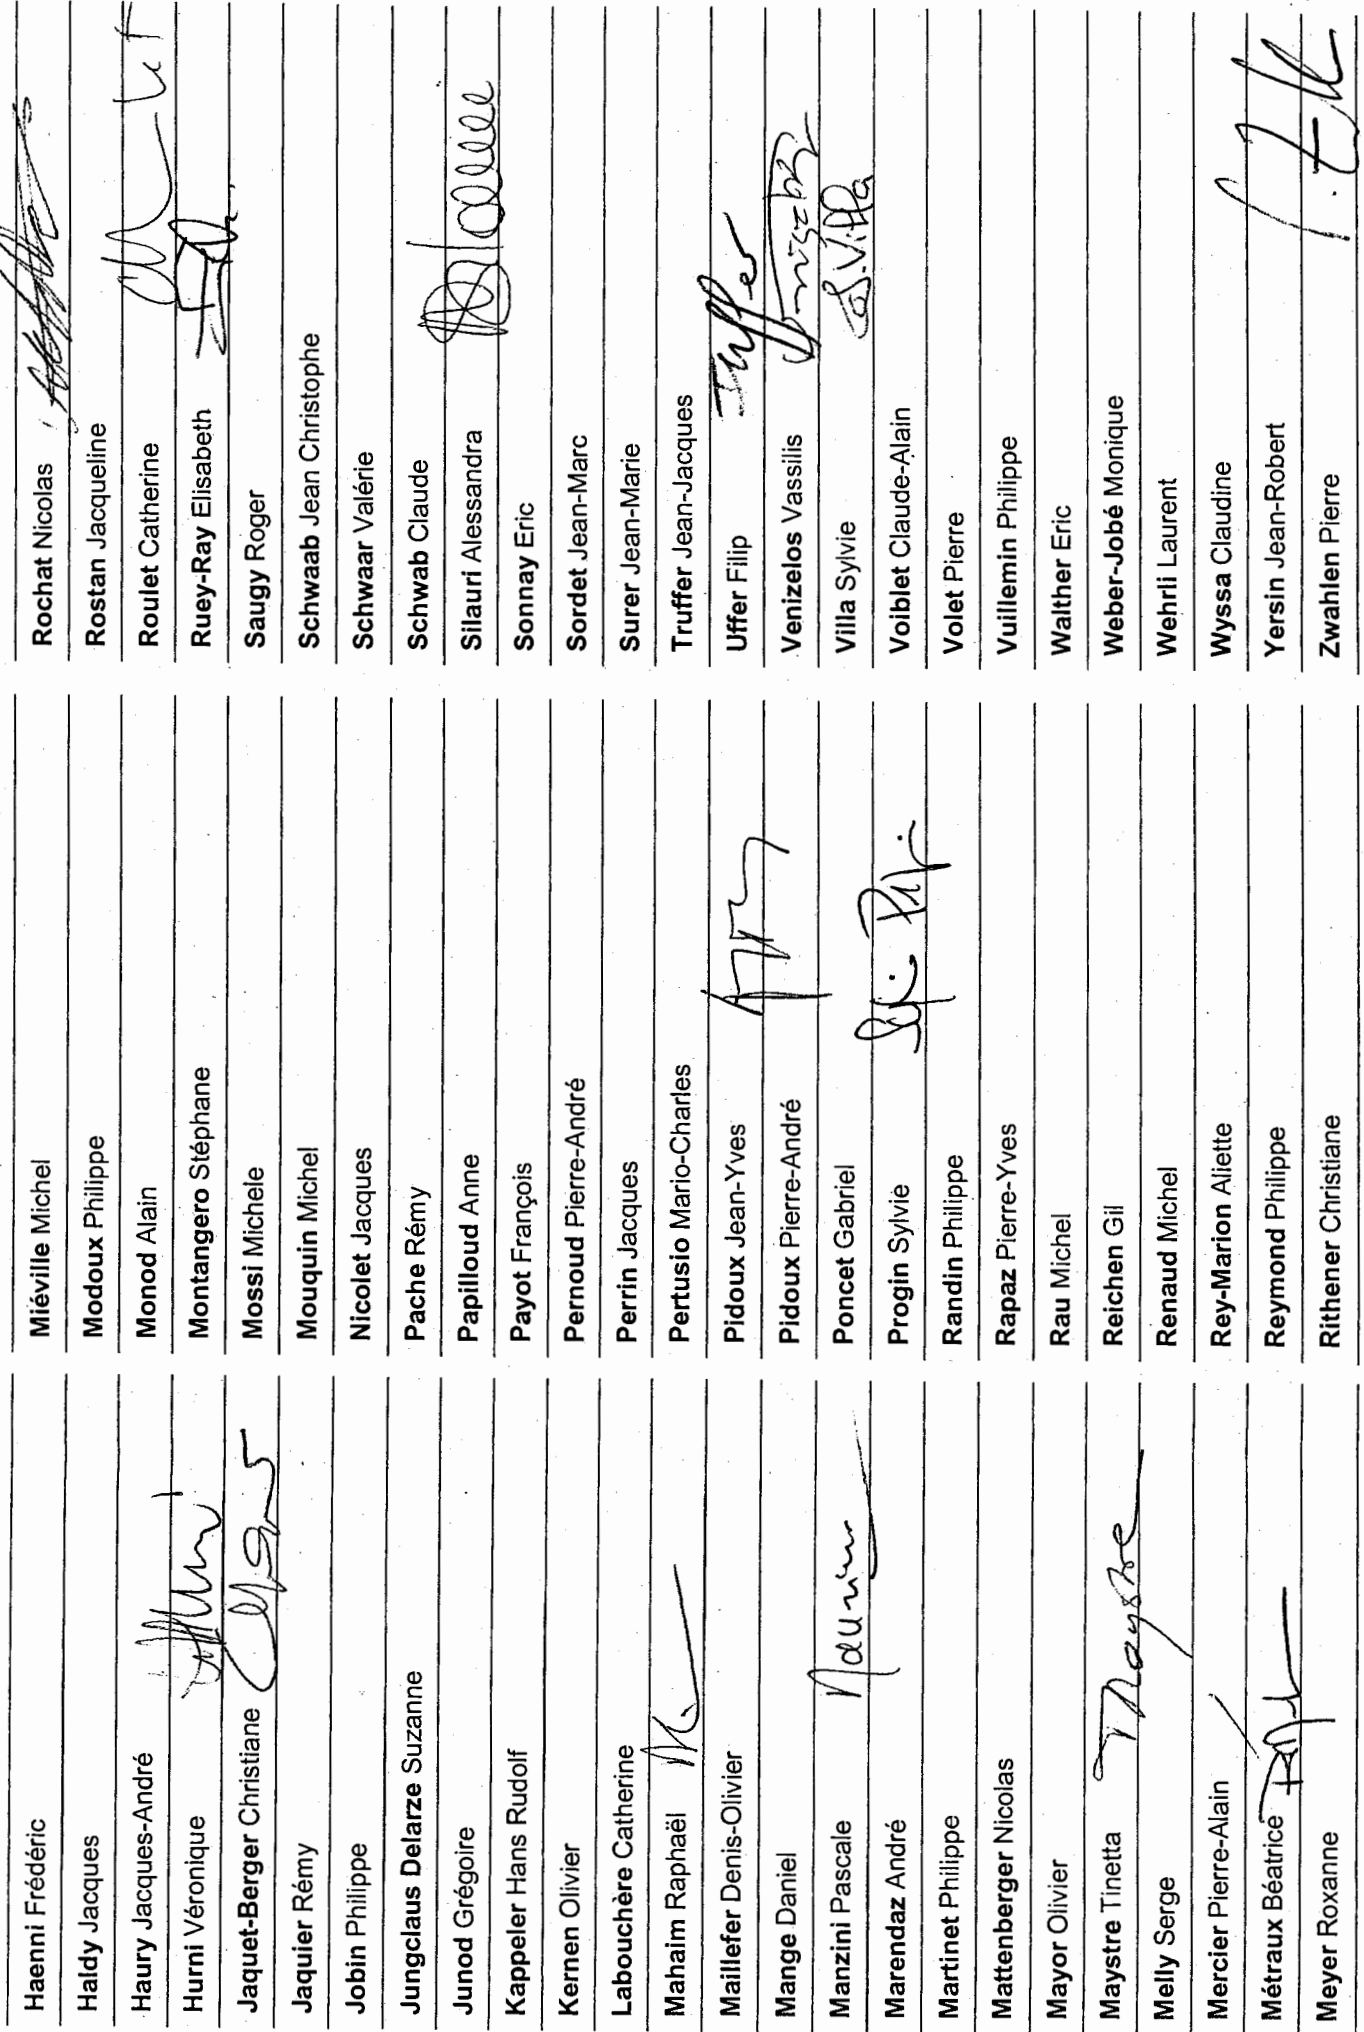 Haenni Frédéric
Haldy Jacques
Haury Jacques-André
Hurni Véronique
Jaquet-Berger Christiane
Jaquier Rémy
Jobin Philippe
Jungclaus Delarze Suzanne
Junod Grégoire
Kappeler Hans Rudolf
Kernen Olivier
Labouchère Catherine
Mahaim Raphaël
Maillefer Denis-Olivier
Mange Daniel
Manzini Pascale
Marendaz André
Martinet Philippe
Mattenberger Nicolas
Mayor Olivier
Maystre Tinetta Maystre
Melly Serge
Mercier Pierre-Alain
Métraux Béatrice
Meyer Roxanne
Miéville Michel
Modoux Philippe
Monod Alain
Montangero Stéphane
Mossi Michele
Mouquin Michel
Nicolet Jacques
Pache Rémy
Papilloud Anne
Payot François
Pernoud Pierre-André
Perrin Jacques
Pertusio Mario-Charles
Pidoux Jean-Yves
Pidoux Pierre-André
Poncet Gabriel
Progin Sylvie
Randin Philippe
Rapaz Pierre-Yves
Rau Michel
Reichen Gil
Renaud Michel
Rey-Marion Aliette
Reymond Philippe
Rithener Christiane
Rochat Nicolas
Rostan Jacqueline
Roulet Catherine
Ruey-Ray Elisabeth
Saugy Roger
Schwaab Jean Christophe
Schwaar Valérie
Schwab Claude
Silauri Alessandra
Sonnay Eric
Sordet Jean-Marc
Surer Jean-Marie
Truffer Jean-Jacques
Uffer Filip Uffer
Venizelos Vassilis
Villa Sylvie S. Villa
Voiblet Claude-Alain
Volet Pierre
Vuillemin Philippe
Walther Eric
Weber-Jobé Monique
Wehrli Laurent
Wyssa Claudine
Yersin Jean-Robert
Zwahlen Pierre